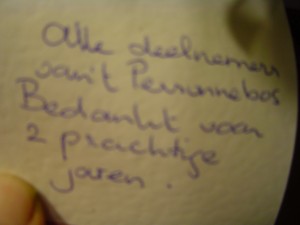 Alle deelnemers
van't Perrunnebos
Bedankt voor
2 prachtige
jaren.